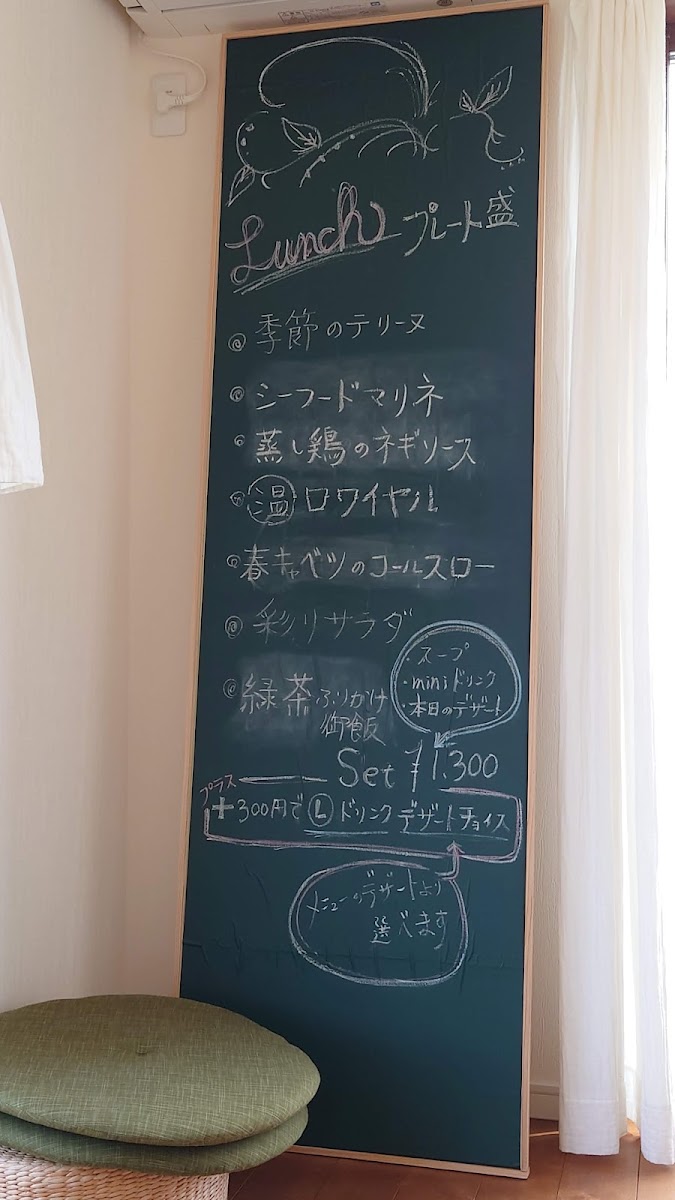 Lunch プレート盛
◎ 季節のテリーヌ
◎ シーフードマリネ
◎ 蒸し鶏のネギソース
◎ 温 ロワイヤル
◎ 春キャベツのコールスロー
◎ 彩りサラダ
◎ 緑茶ふりかけ
御飯
・スープ
・miniドリンク
・本日のデザート
Set ¥1.300
プラス
+300円で Ⓛドリンク デザートチョイス
メニューのデザートより
選べます